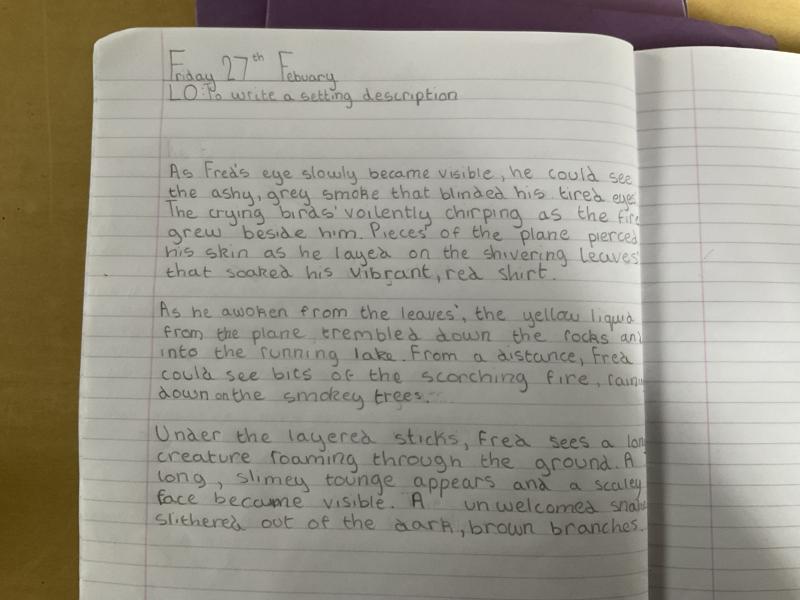 Friday 27th Febuary
LO: To write a setting description
As Fred's eye slowly became visible, he could see
the ashy, grey smoke that blinded his tired eyes
The crying birds' voilently chirping as the fire
grew beside him. Pieces of the plane pierced
his skin as he layed on the shivering leaves'
that soaked his vibrant, red shirt.
As he awoken from the leaves', the yellow liquid
from the plane trembled down the rocks and
into the running lake. From a distance, Fred
could see bits of the scorching fire,
down on the smokey trees.
Under the layered sticks, Fred sees a
creature roaming through the ground. A
long, slimey tounge appears and a scaley
face became visible. A unwelcomed snake
slithered out of the dark, brown branches.